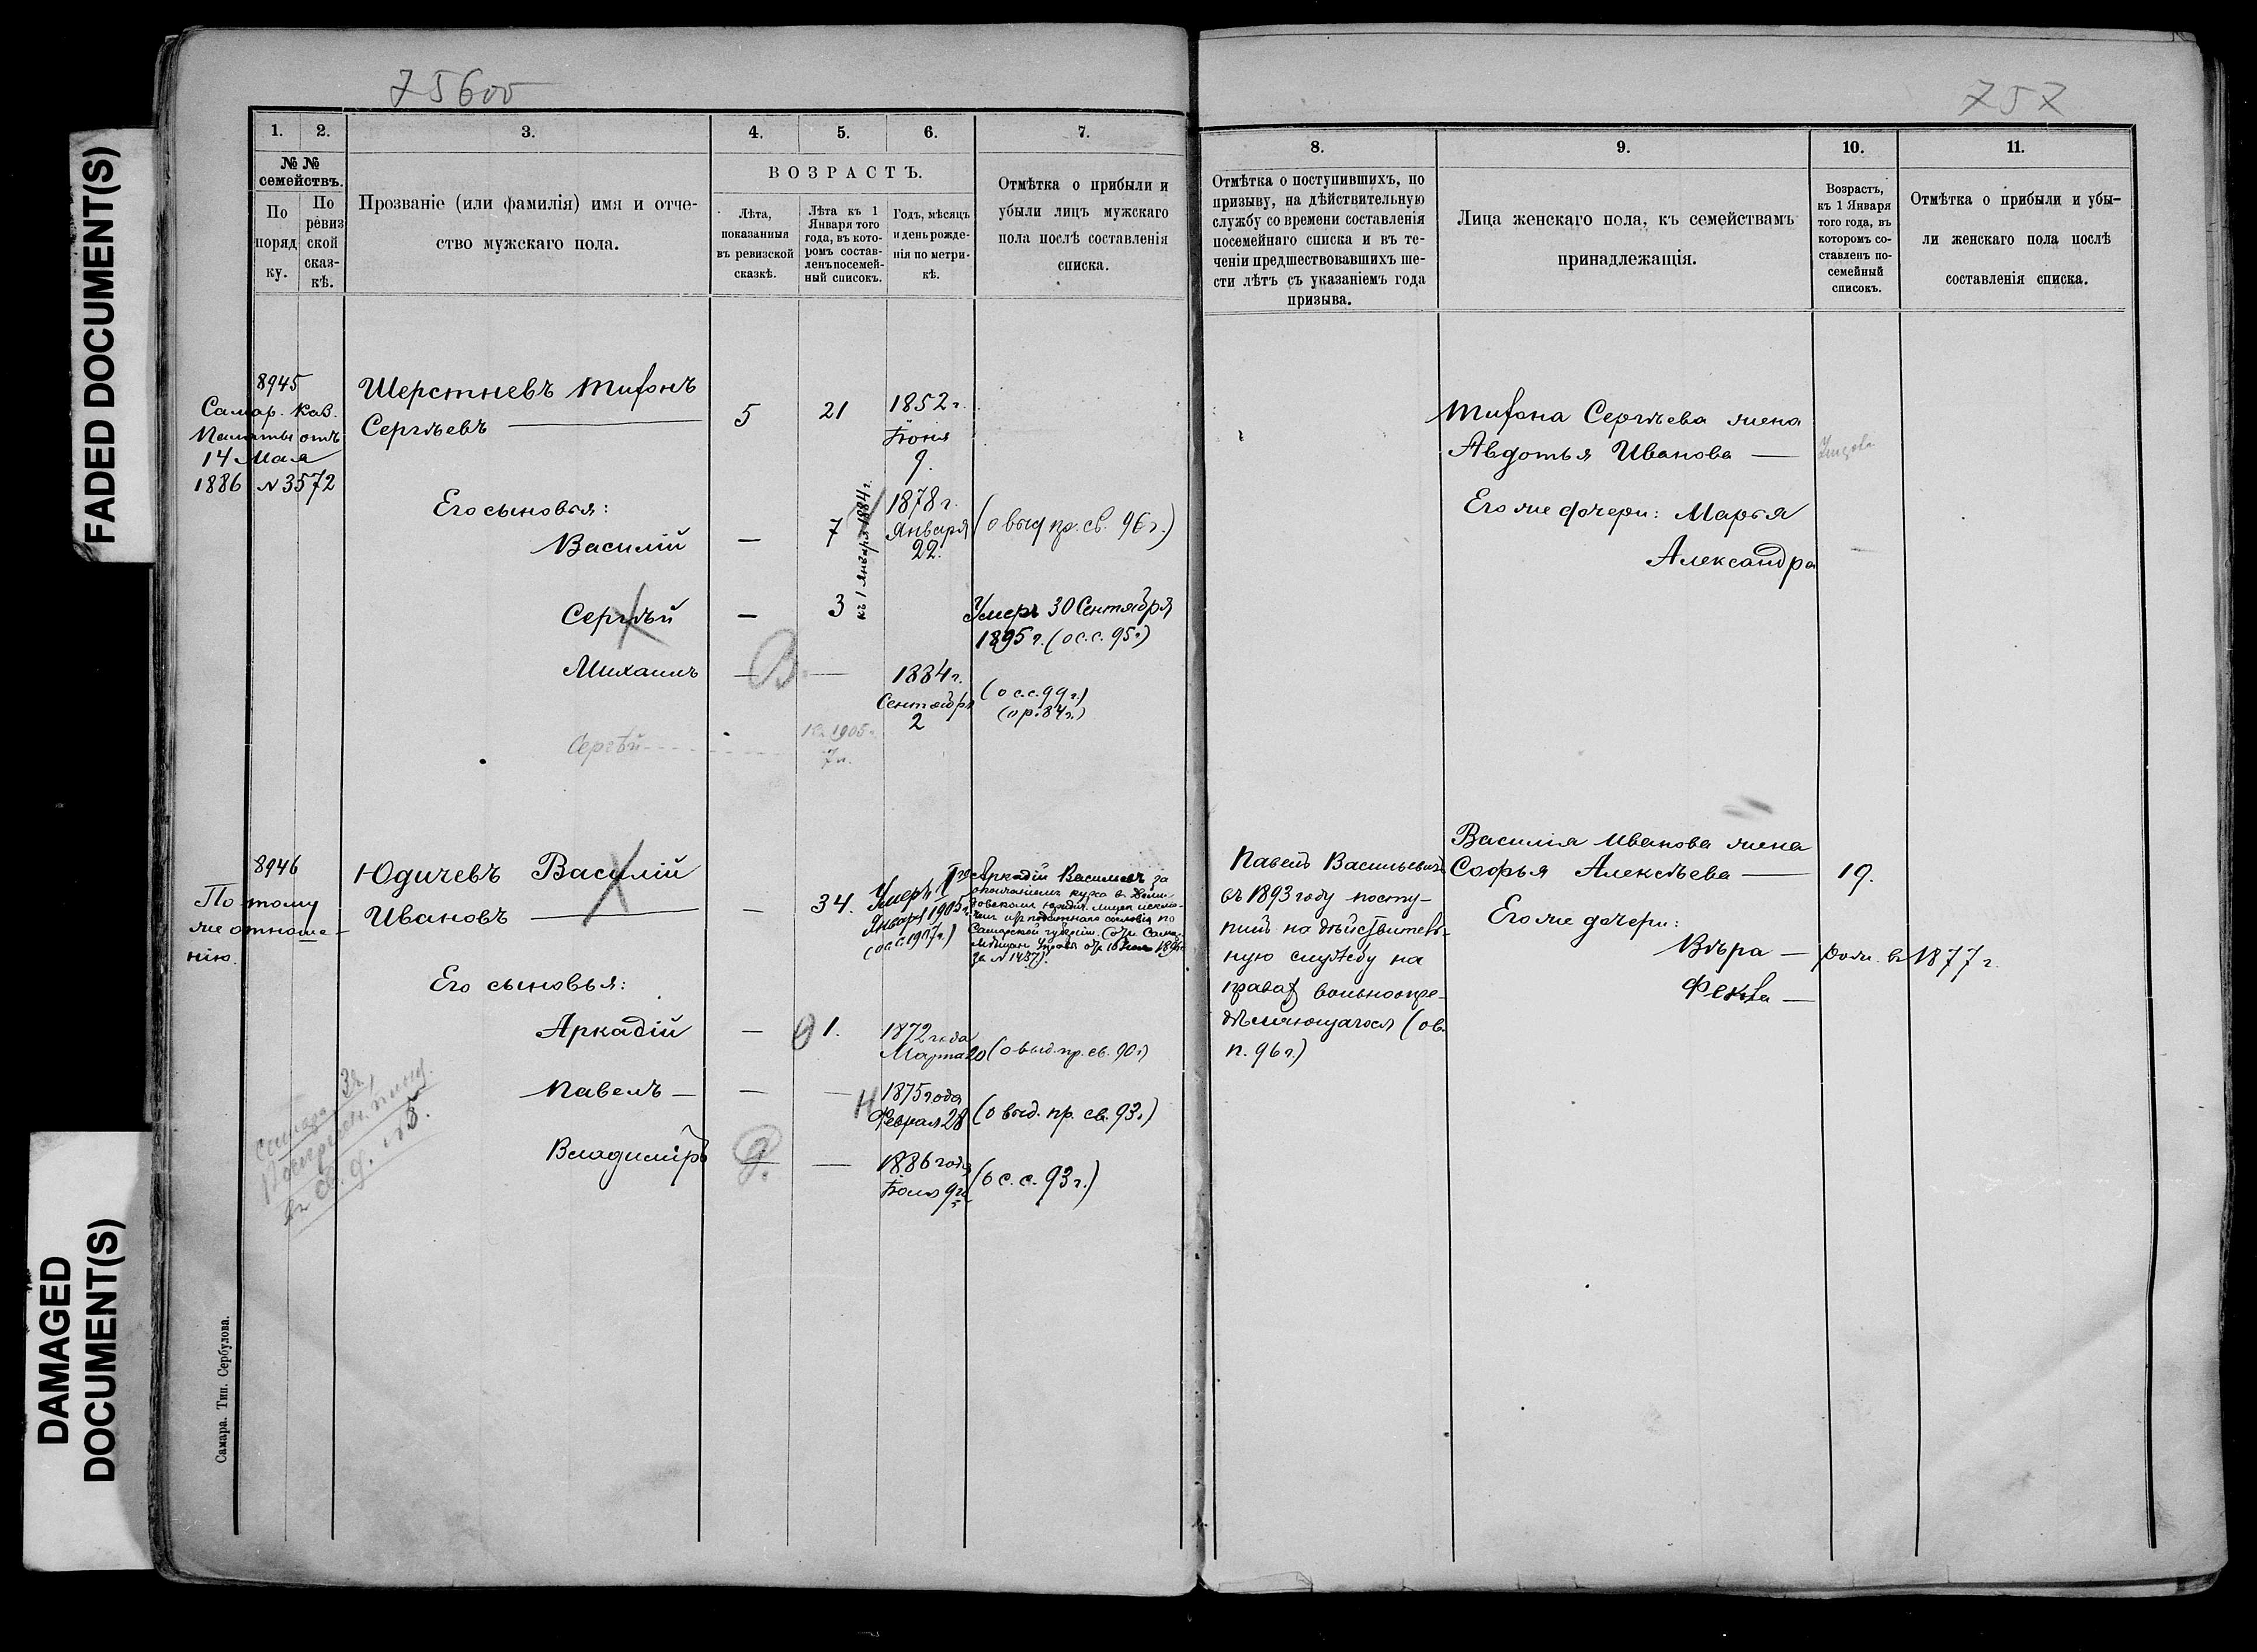 FADED DOCUMENT(S)
DAMAGED
DOCUMENT(S)
756об
757
1.
2.
3.
4.
5.
6.
7.
№ №
семействъ.
По
поряд
ку.
По
ревиз
ской
сказ-
кѣ.
Прозваніе (или фамилія) имя и отче-
ство мужскаго пола.
ВОЗРАСТЪ.
Лѣта,
показанныя
въ ревизской
сказкѣ.
Лѣта къ 1
Января того
года, въ кото-
ромъ состав-
ленъ посемей-
ный списокъ.
Годъ, мѣсяцъ
и день рожде-
нія по метри-
кѣ.
Отмѣтка о прибыли и
убыли лицъ мужскаго
пола послѣ составленія
списка.
8945
Самар. Каз.
Палаты отъ
14 Мая
1886 № 3572
Шерстневъ Тифонъ
Сергѣевъ
5
21
1852 г.
Іюня
9.
Его сыновья:
Василій
—
7
къ 1 января 1884 г.
1878 г.
Января
22.
(о выд пр. св. 96 г.)
Сергѣй
—
3
Умеръ 30 Сентября
1895 г. (о с. с. 95 г.)
Михаилъ
—
В.
—
1884 г.
Сентября
2
(о с. с. 99 г.)
(о р. 84 г.)
Сергѣй
Къ 1905 г.
7 л.
8946
По тому
же отноше-
нію.
Юдичевъ Василій
Ивановъ
—
34.
Умеръ 1го
Января 1905 г.
(о с. с 1907 г.)
Аркадій Васильевъ за
окончаніемъ курса въ Деми-
довскомъ Юридич. лицеѣ исклю-
ченъ изъ податнаго сословія по
Самарской губерніи.
за № 1437).
Его сыновья:
Аркадій
—
1.
1872 года
Марта 20
(о выд. пр. св. 90 г.)
Павелъ —
—
—
Н
1875 года
Февраля 28
(о выд. пр. св. 93 г.)
Владиміръ
—
—
1886 года
Іюля 9го
(о с. с. 93 г.)
Самара. Тип. Сербулова.
8.
9.
10.
11.
Отмѣтка о поступившихъ, по
призыву, на дѣйствительную
службу со времени составленія
посемейнаго списка и въ те-
ченіи предшествовавшихъ ше-
сти лѣтъ съ указаніемъ года
призыва.
Лица женскаго пола, къ семействамъ
принадлежащія.
Возрастъ,
къ 1 Января
того года, въ
которомъ со-
ставленъ по-
семейный
списокъ.
Отмѣтка о прибыли и убы-
ли женскаго пола послѣ
составленія списка.
Тифона Сергѣева жена
Авдотья Иванова —
Его же дочери: Марья
Александра
Павелъ Васильевичъ
въ 1893 году посту-
пилъ на дѣйствитель-
ную службу на
правах вольноопре-
дѣляющагося (о в.
п. 96 г.)
Василія Иванова жена
Софья Алексѣева —
19.
Его же дочери:
Вѣра —
род. въ 1877 г.
Фекла —